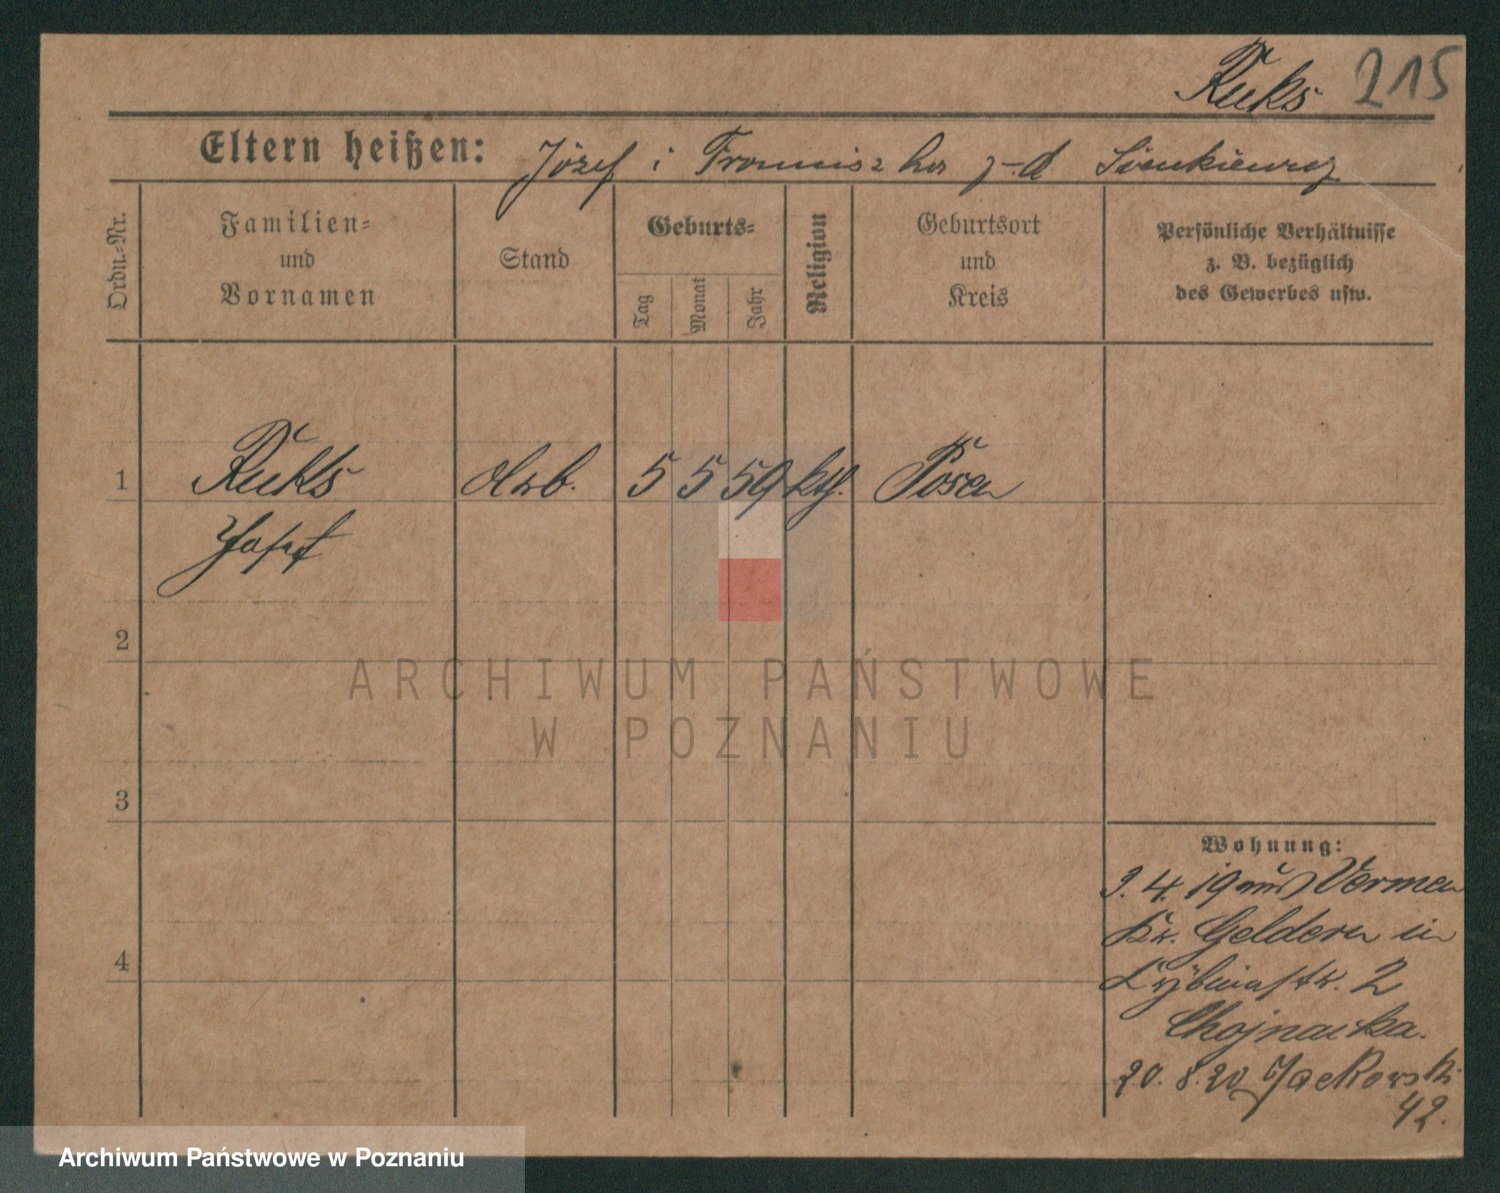 Ruks 215
Eltern heißen: Józef i Franciszka z-d Sienkiewicz
Ordn.-Nr.
Familien-
und
Vornamen
Stand
Geburts-
Tag
Monat
Jahr
Religion
Geburtsort
und
Kreis
Persönliche Verhältnisse
z. B. bezüglich
des Gewerbes usw.
1 Ruks Arb. 5 5 59 kth. Posen
Josef
2
3
4
Wohnung:
9. 4. 19 aus
Kr. Geldern in
2
Chojnacka.
20. 8. 20 Jackowski
42.
ARCHIWUM PAŃSTWOWE
W POZNANIU
Archiwum Państwowe w Poznaniu